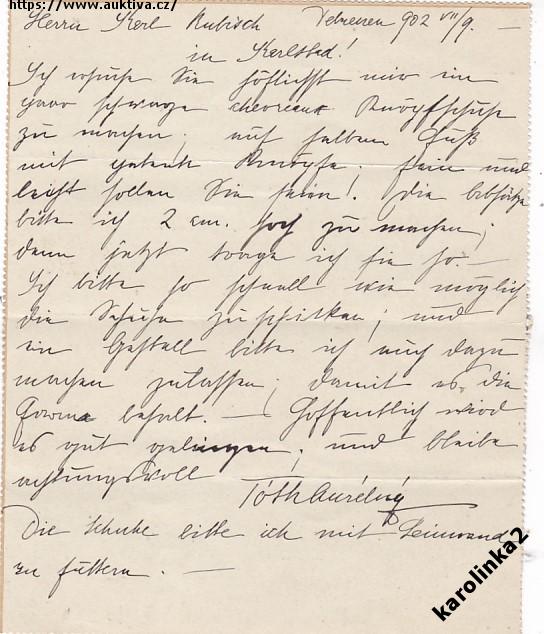 https://www.auktiva.cz/
Herrn Karl Rubisch Debreczen 902 VII/9. —
in Karlsbad!
Ich ersuche Sie höflichst mir ein
paar schwarze chevreaux Knöpfschuhe
zu machen; auf halben Fuß
mit Knöpfe; fein und
leicht sollen Sie sein! Die Absätze
bitte ich 2 cm. hoch zu machen;
denn jetzt trage ich sie so. —
Ich bitte so schnell wie möglich
die Schuhe zu schicken; und
ein Gestell bitte ich auch dazu
machen zulassen; damit es die
Forma behalt. — Hoffentlich wird
es gut gelingen; und bleibe
achtungsvoll Tóth Aurélné
Die Schuhe bitte ich mit Leinwand
zu füttern. —
karolinka2